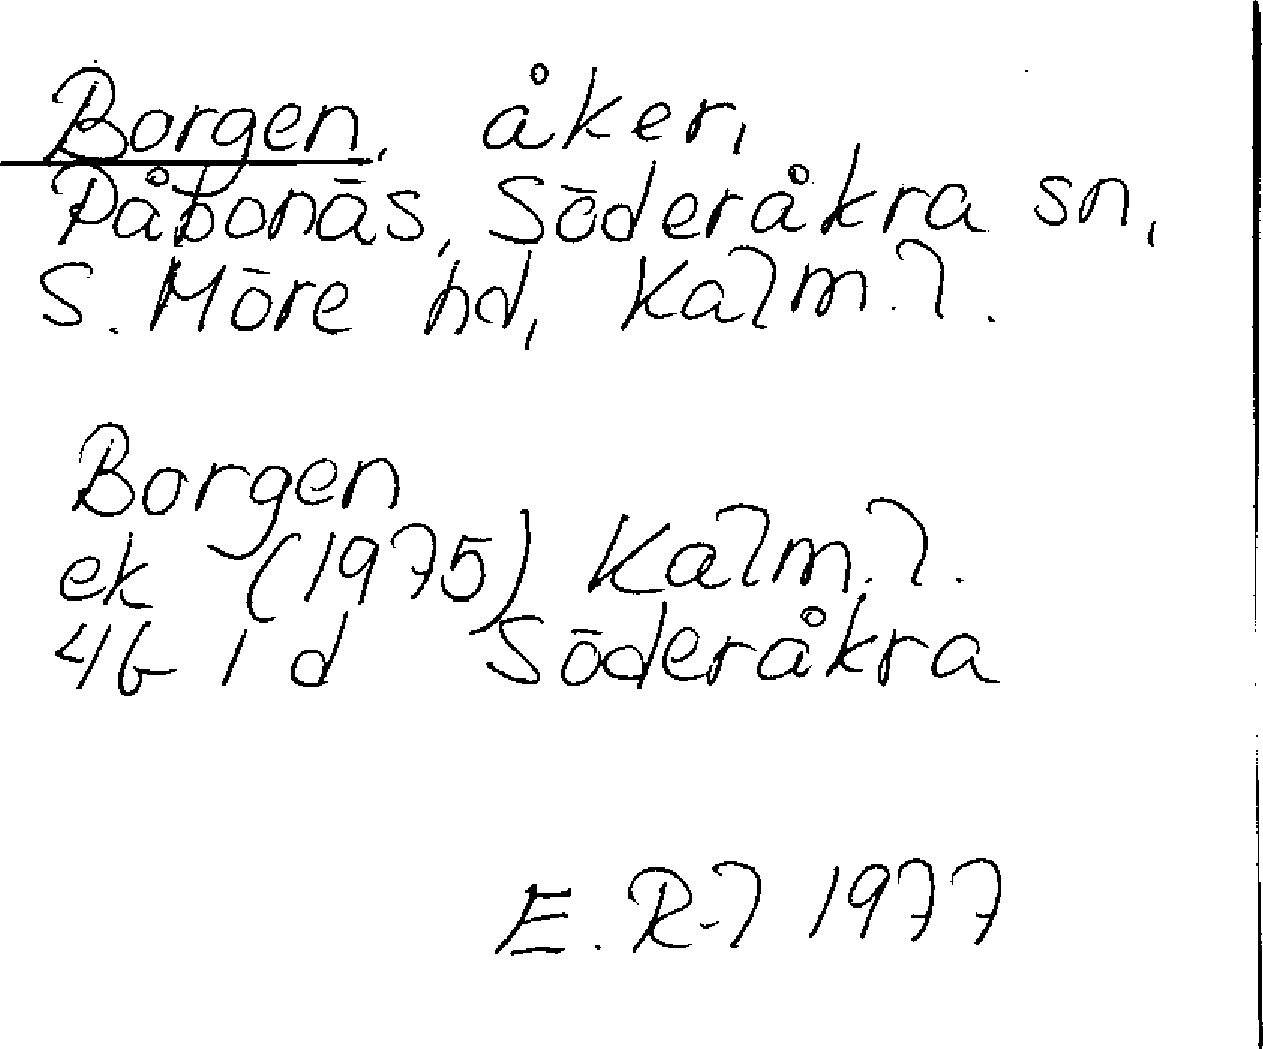 Borgen, åker,
Påbonäs, Söderåkra sn,
S. Möre hd, Kalm. l.
Borgen
ek (1975) Kalm. l.
4G 1 d Söderåkra
E. R-l 1977